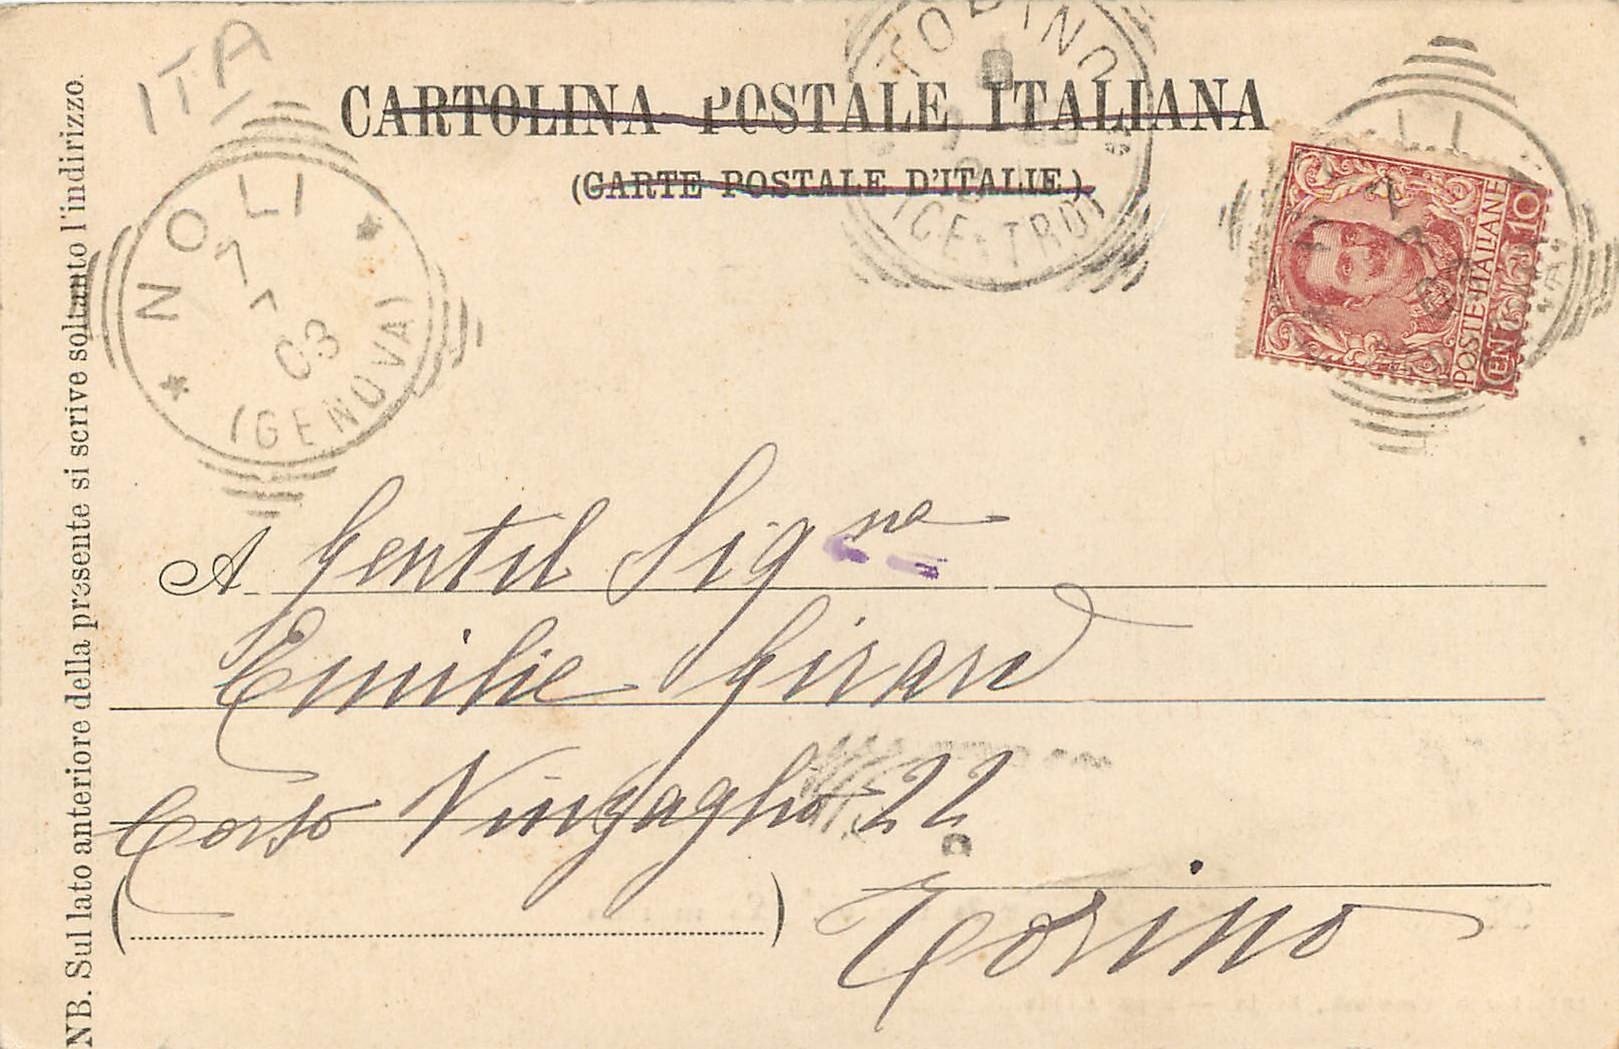 ITA
CARTOLINA POSTALE ITALIANA
(CARTE POSTALE D'ITALIE)
NOLI
7 7 03
(GENOVA)
TORINO
(CENTRO)
POSTE ITALIANE
CENT. 10
A Gentil Signa
Emilie Girard
Corso Vinzaglio 22
Torino
NB. Sul lato anteriore della presente si scrive soltanto l'indirizzo.